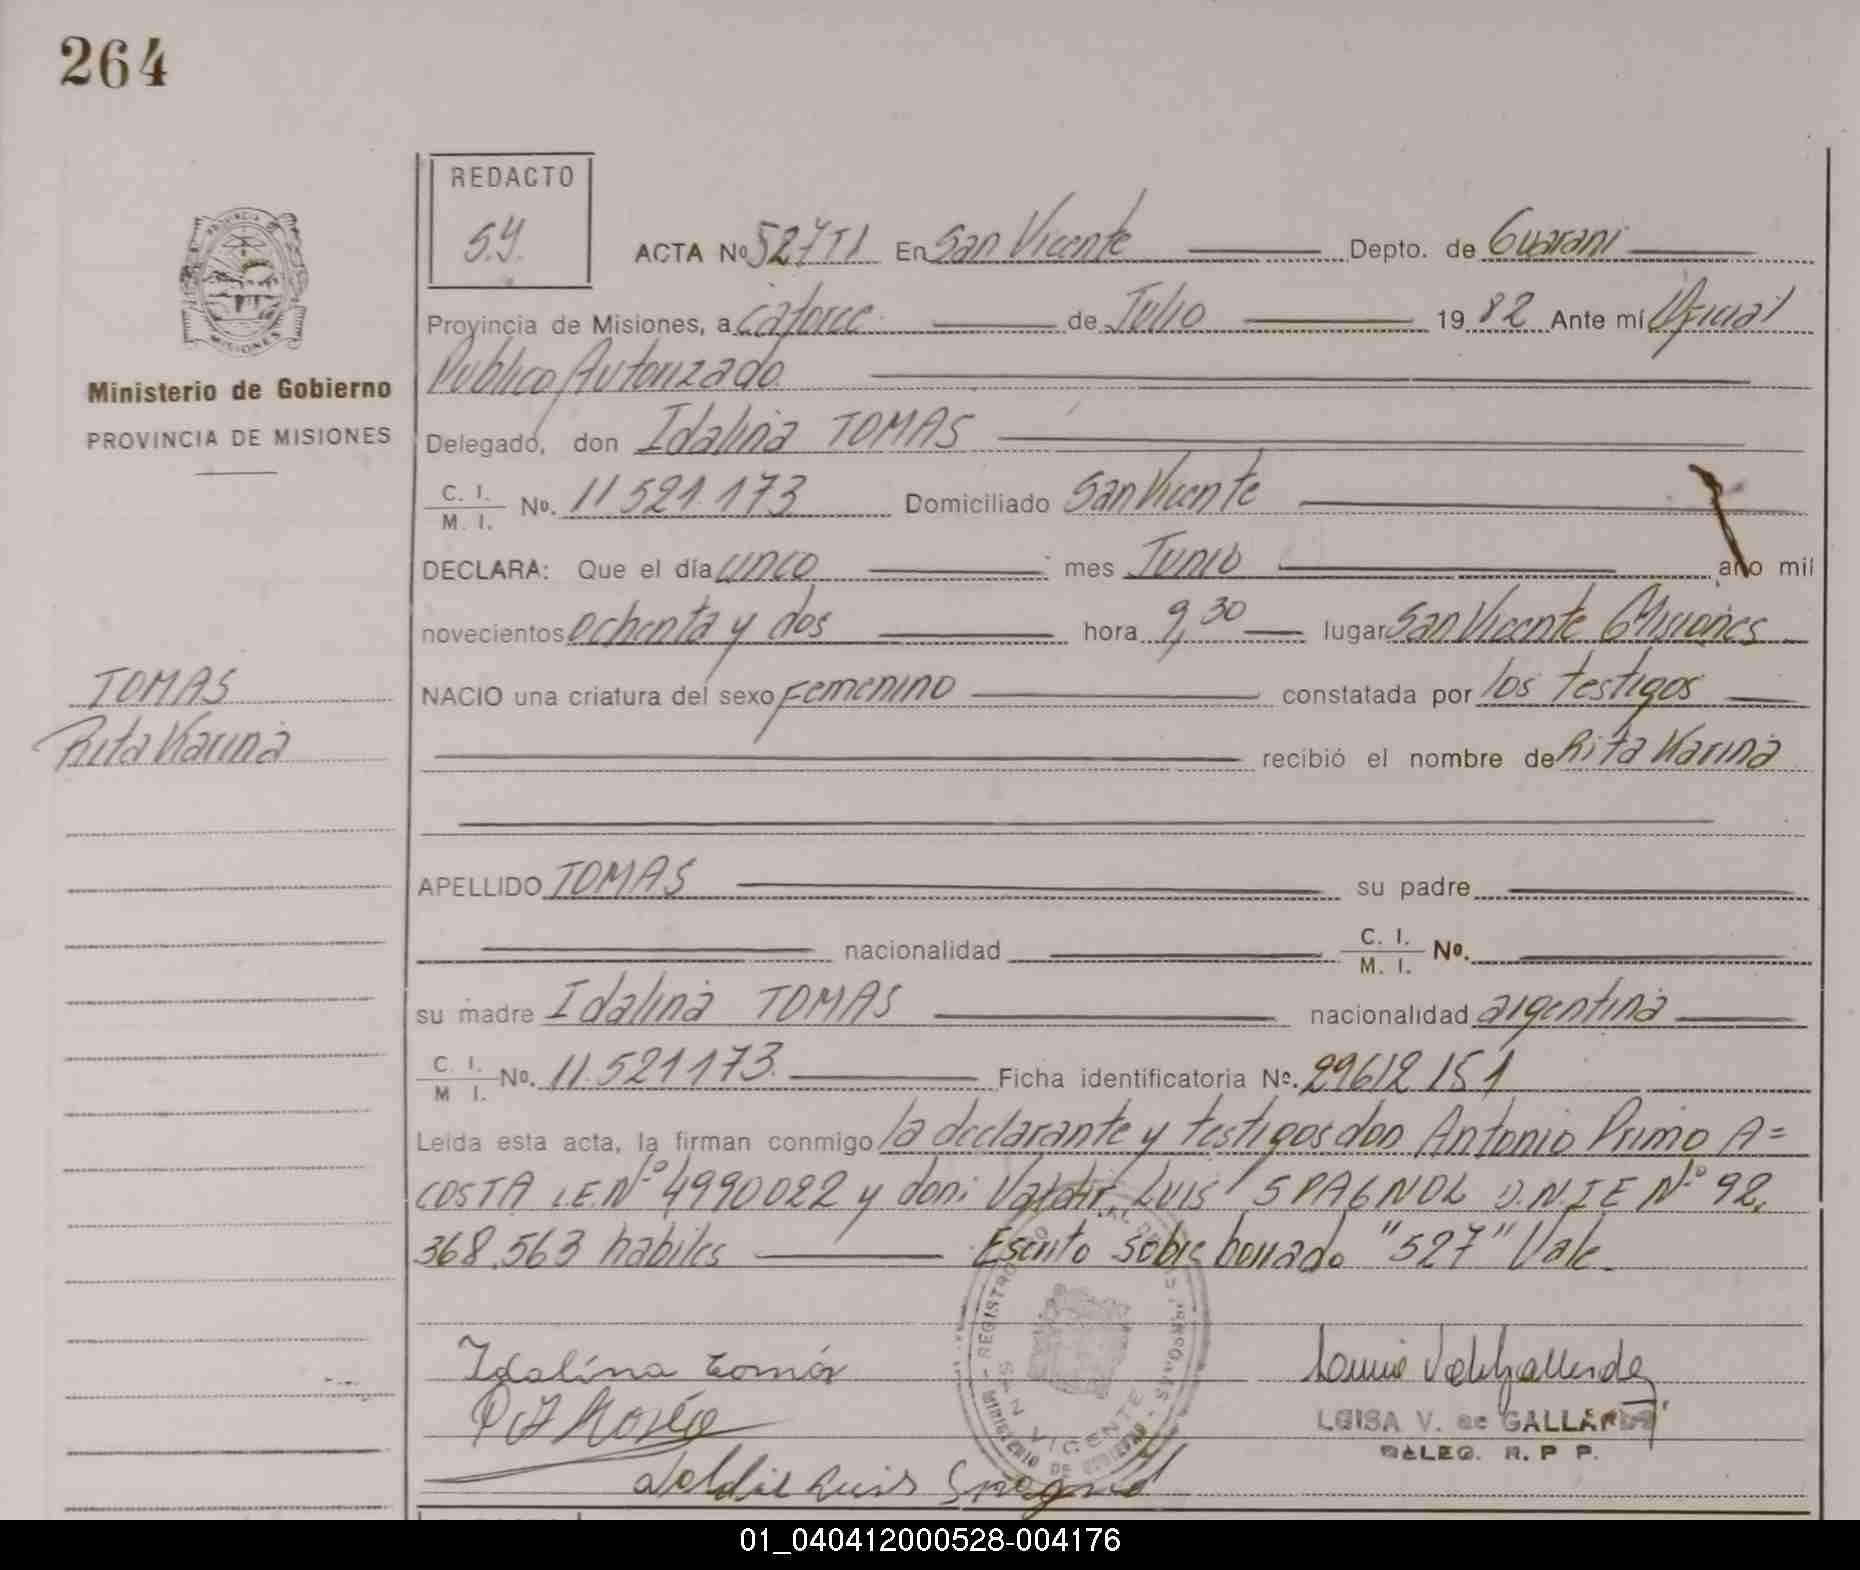 264
REDACTO
S.Y.
ACTA No 527 T1 En San Vicente Depto. de Guarani
Provincia de Misiones, a catorce de Julio 1982 Ante mí Oficial
Publico Autorizado
Ministerio de Gobierno
PROVINCIA DE MISIONES
Delegado, don Idalina TOMAS
C. I. / M. I. No. 11 521.173 Domiciliado San Vicente
DECLARA: Que el día cinco mes Junio año mil
novecientos ochenta y dos hora 9,30 lugar San Vicente Misiones
TOMAS
Rita Karina
NACIO una criatura del sexo Femenino constatada por los testigos
recibió el nombre de Rita Karina
APELLIDO TOMAS su padre
nacionalidad C. I. / M. I. No.
su madre Idalina TOMAS nacionalidad argentina
C. I. / M I. No. 11.521173. Ficha identificatoria No. 29612151
Leída esta acta, la firman conmigo la declarante y testigos don Antonio Primo A=
COSTA L.E.Nº 4990022 y don: Valdir Luis SPAGNOL D.N.I E Nº 92.
368.563 habiles Escrito sobre borrado "527" Vale.
Idalína tomás
LUISA V. de GALLARDO
DELEG. R. P P.
Valdir Luis Spagnol
REGISTRO
SAN VICENTE
MINISTERIO DE GOBIERNO
01_040412000528-004176